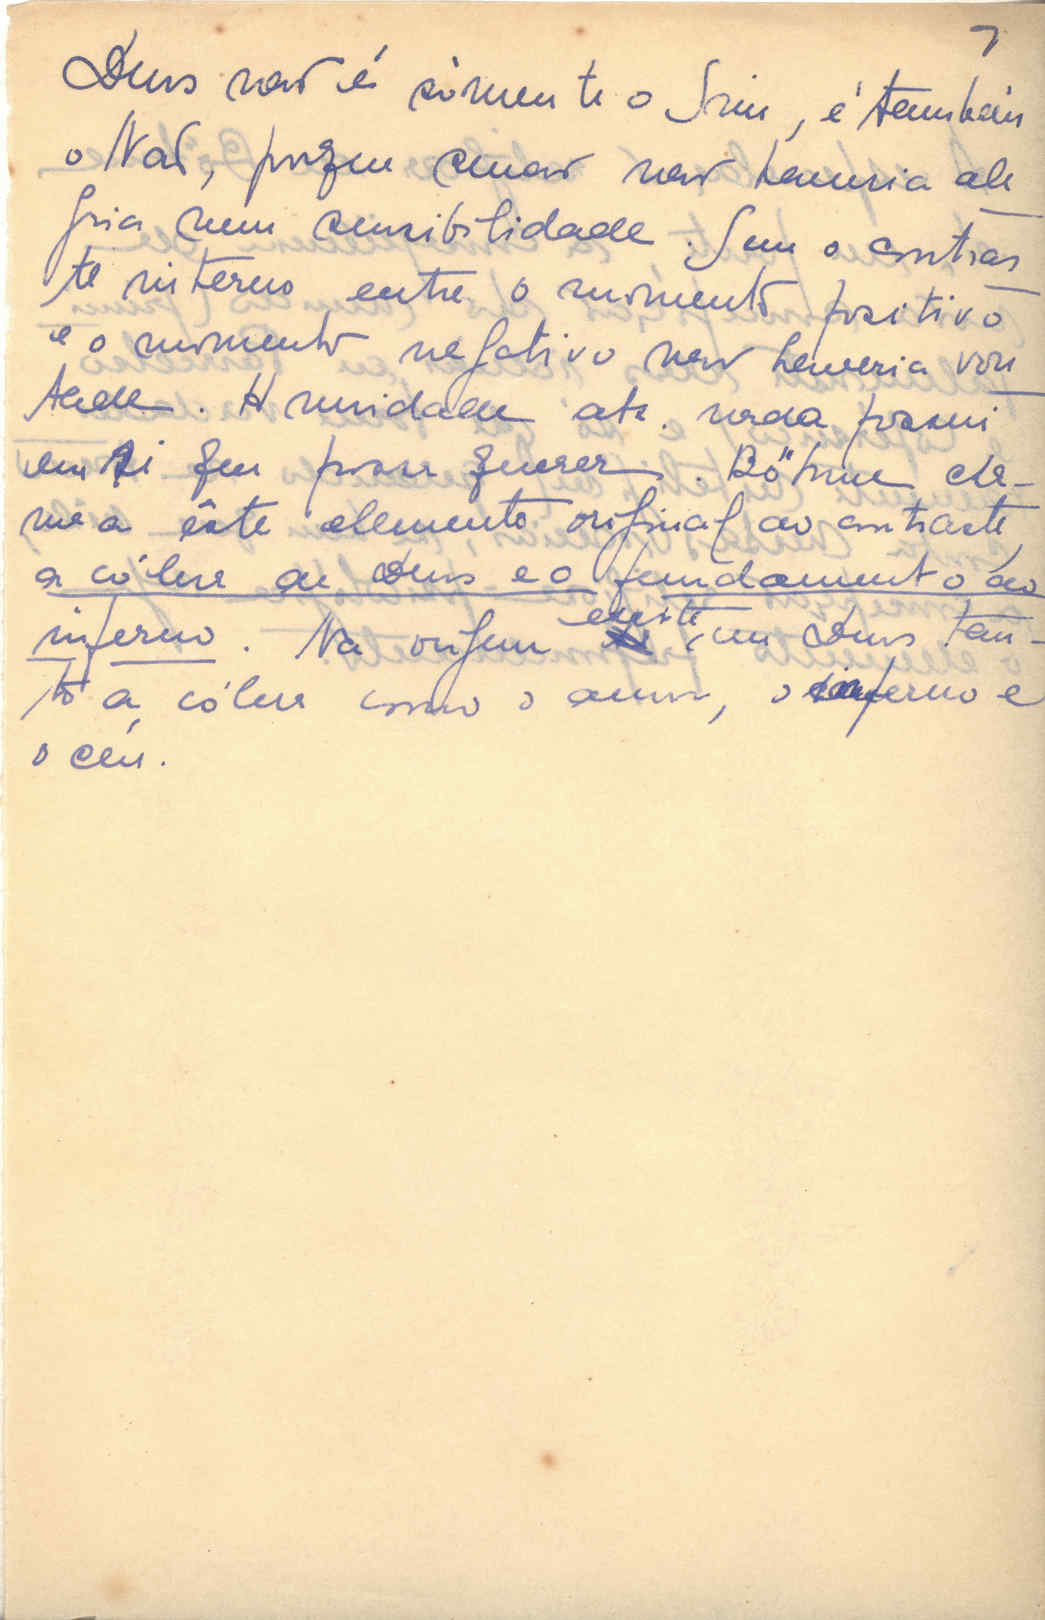 7
Deus não é sòmente o Sim, é também
o Não, porque senão não haveria ale
gria nem sensibilidade. Sem o contras
te interno entre o momento positivo
e o momento negativo não haveria von
tade. A unidade não possui
em si que possa querer. Böhme cha-
ma a êste elemento original do contraste,
a cólera de Deus e o fundamento do
inferno. Na origem existe, em Deus tan-
to a cólera como o amor, o inferno e
o céu.